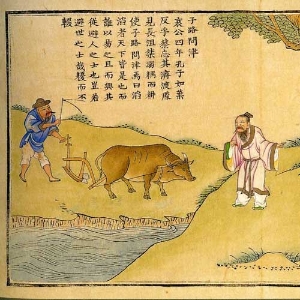 子路問津
哀公四年孔子如葉
反乎蔡忘其濟渡處
見長沮桀溺耦而耕
使子路問津焉曰滔
滔者天下皆是也而
誰以易之且而與其
從避人之士也豈若
避世之士哉耰而不
輟